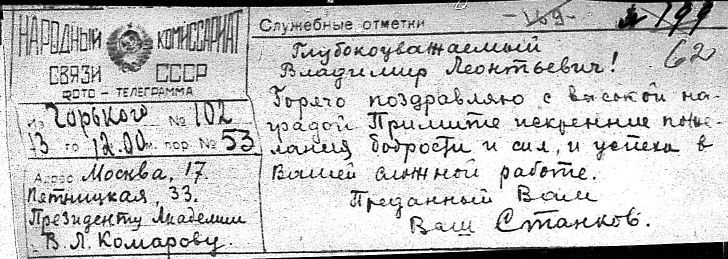 НАРОДНЫЙ КОМИССАРИАТ
СВЯЗИ СССР
ФОТО - ТЕЛЕГРАММА
Из Горького № 102
13 го 12.00 м. пор № 53
Адрес Москва, 17.
Пятницкая, 33.
Президенту Академии
В. Л. Комарову.
Служебные отметки
169
№ 199
62
Глубокоуважаемый
Владимир Леонтьевич!
Горячо поздравляю с высокой на-
градой. Примите искренние поже-
лания бодрости и сил, и успеха в
Вашей сложной работе.
Преданный Вам
Ваш Станков.